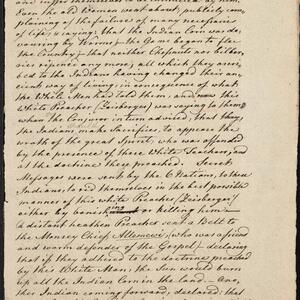 and suffer themselves to be
Even the old Women went about publicly, com,,
plaining of the failures of many necessaries
of life; saying; that the Indian Corn was de,,
voured by Worms; – the Game began to leave
the Country – that neither Chesnuts nor bilber,,
ries ripened any more; all which they ascri,,
bed to the Indians having changed their an,,
cient way of living, in consequence of what
the White Men had told them, and this
White Preacher (Zeisberger) was saying to them,
when the Conjuror in turn advised, that they,
the Indians, make Sacrifices, to appease the
wrath of the great Spirit, who was offended
by the presence of these white Teachers, and
at the doctrine these preached. Secret
Messages were sent by the 6 Nations, to these
Indians, to rid themselves in the best possible
manner of this white Preacher (Zeisberger)
either by banishing or killing him –
A distant heathen Preacher sent a Belt to
the Munsey Chief Allemewi (who was a friend
and warm defender of the Gospel) – declaring
that if they adhered to the doctrine preached
by this White Man; the Sun would burn
up all the Indian Corn in the land. One,
the Indian coming forward, declared: that